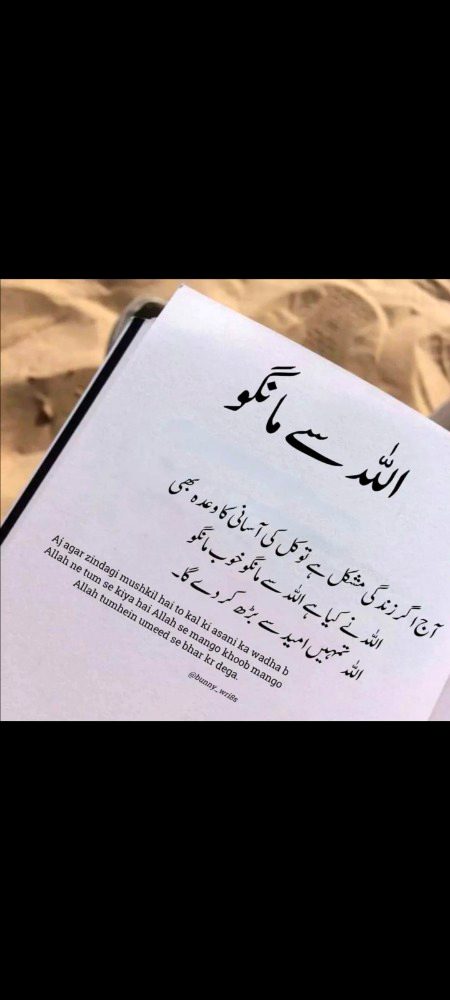 اللہ سے مانگو
آج اگر زندگی مشکل ہے تو کل کی آسانی کا وعدہ بھی
اللہ نے کیا ہے اللہ سے مانگو خوب مانگو
اللہ تمہیں امید سے بڑھ کر دے گا۔
Aj agar zindagi mushkil hai to kal ki asani ka wadha b
Allah ne tum se kiya hai Allah se mango khoob mango
Allah tumhein umeed se bhar kr dega.
@bunny_wri8s